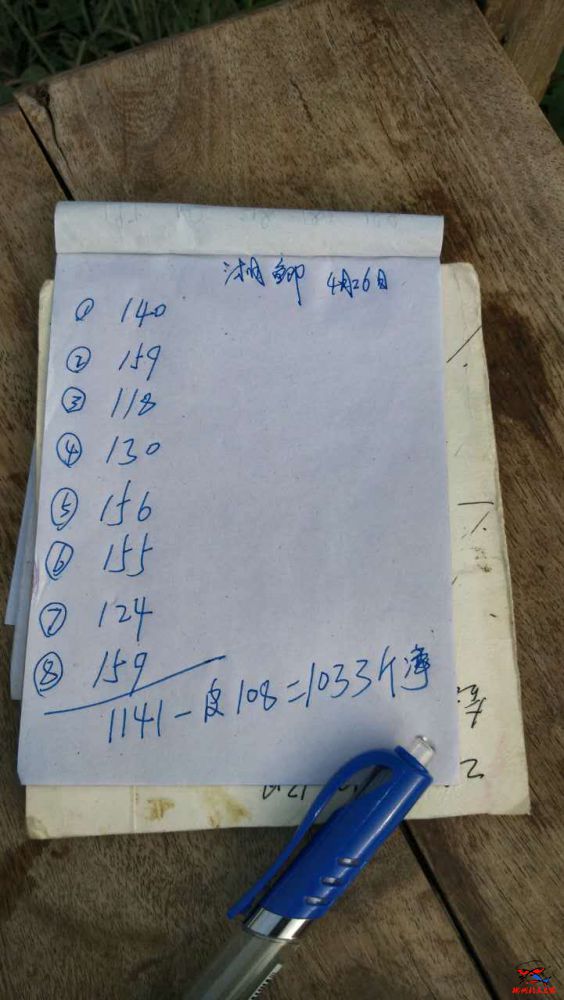 湘鲫 4月26日
① 140
② 159
③ 118
④ 130
⑤ 156
⑥ 155
⑦ 124
⑧ 159
1141-皮108=1033斤净